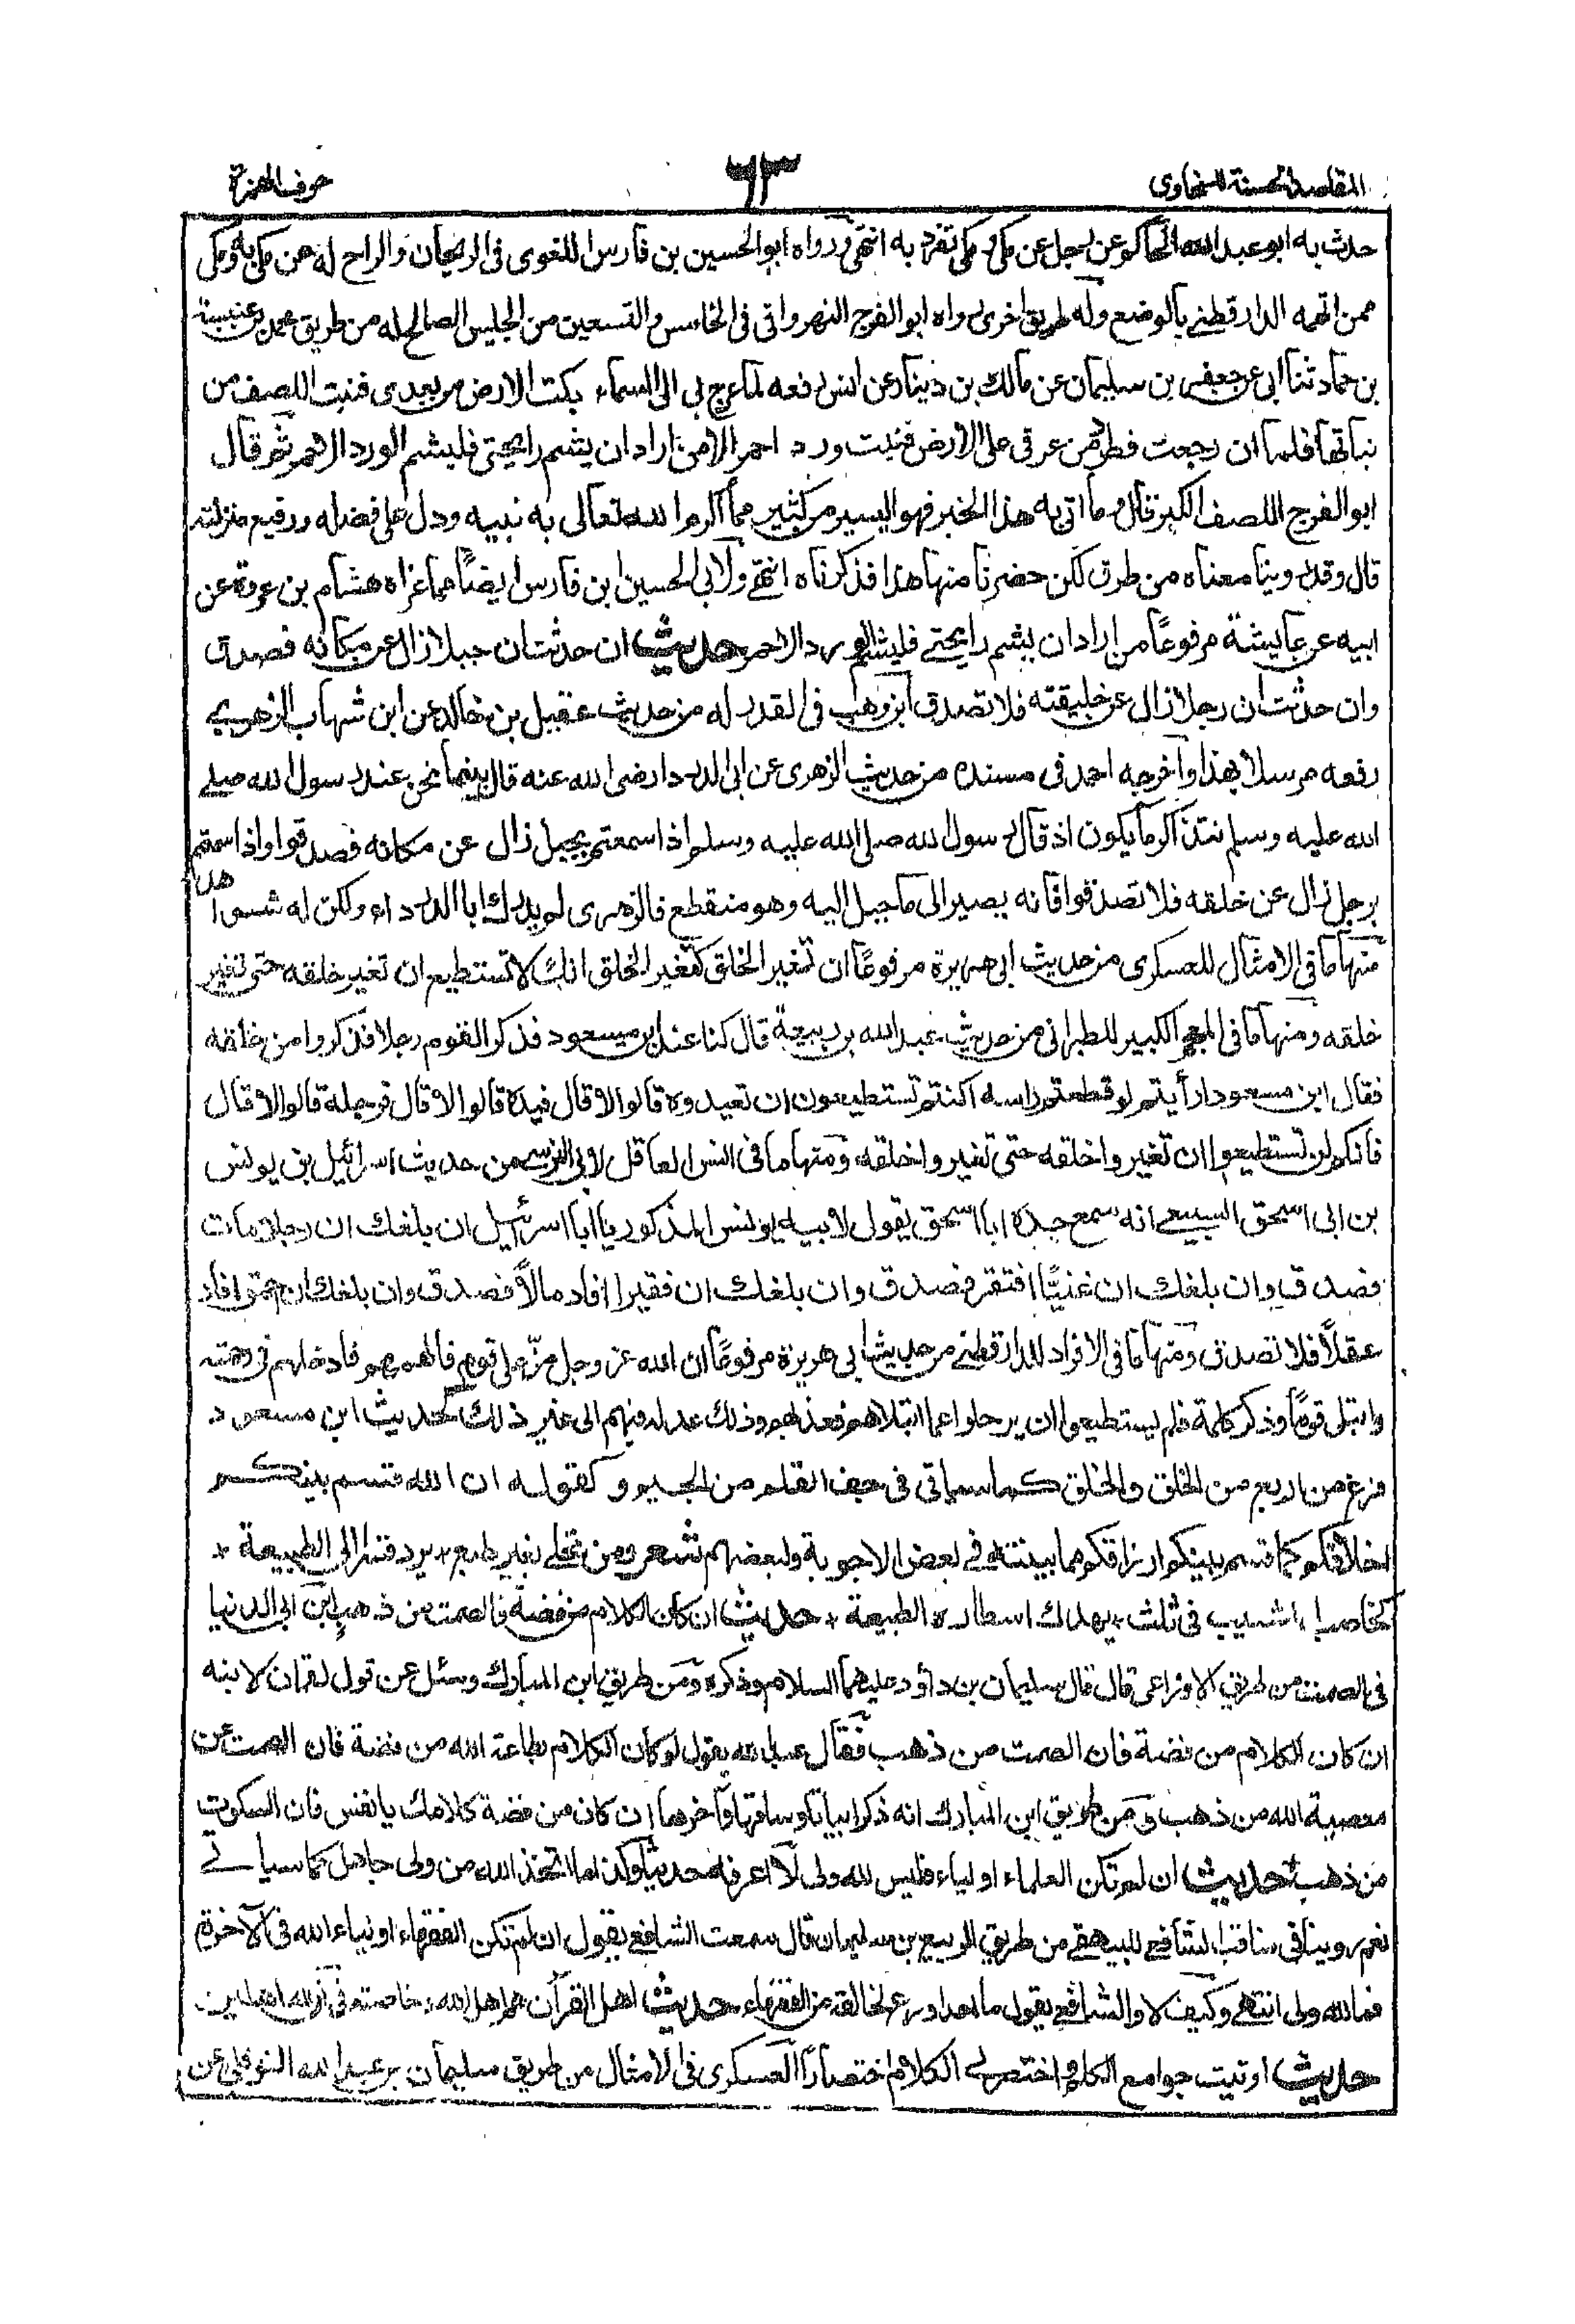 المقاصد الحسنة للسخاوى
٦٣
حرف الهمزة
حدث به ابو عبد الله الحاكم عن رجل عن مكى ومكى تفرد به انتهى ورواه ابو الحسين بن فارس اللغوى فى الريحان والراح له عن مكى به ومكى
ممن اتهمه الدارقطنى بالوضع وله طريق اخرى رواه ابو الفرج النهروانى فى الخامس والتسعين من الجليس الصالح له من طريق محمد بن عنبسة
بن حماد ثنا ابى عن جعفر بن سليمان عن مالك بن دينار عن انس رفعه لما عرج بى الى السماء بكت الارض من بعدى فنبت اللصف من
نباتها فلما ان رجعت قطر من عرقى على الارض فنبت ورد احمر الا من اراد ان يشم رايحتى فليشم الورد الاحمر ثم قال
ابو الفرج اللصف الكبر قال وما اتى به هذا الخبر فهو اليسير من كثير مما اكرم الله تعالى به نبيه ودل على فضله ورفيع منزلته
قال وقد روينا معناه من طرق لكن حضرنا منها هذا فذكرناه انتهى ولابى الحسين ابن فارس ايضًا مما عزاه هشام بن عروة عن
ابيه عن عايشة مرفوعًا من اراد ان يشم رايحتى فليشم الورد الاحمر حديث ان حدثت ان جبلا زال عن مكانه فصدق
وان حدثت ان رجلا زال عن خليقته فلا تصدق ابن وهب فى القدر له من حديث عقيل بن خالد عن ابن شهاب الزهرى
رفعه مرسلا بهذا واخرجه احمد فى مسنده من حديث الزهرى عن ابى الدرداء رضى الله عنه قال بينما نحن عند رسول الله صلى
الله عليه وسلم نتذاكر ما يكون اذ قال رسول الله صلى الله عليه وسلم اذا سمعتم بجبل زال عن مكانه فصدقوا واذا سمعتم
برجل زال عن خلقه فلا تصدقوا فانه يصير الى ما جبل اليه وهو منقطع فالزهرى لم يدرك ابا الدرداء ولكن له شواهد
منها ما فى الامثال للعسكرى من حديث ابى هريرة مرفوعًا ان تغير الخلق كتغير الخلق انك لا تستطيع ان تغير خلقه حتى تغير
خلقه ومنها ما فى المعجم الكبير للطبرانى من حديث عبد الله بن ربيعة قال كنا عند ابن مسعود فذكر القوم رجلا فذكروا من خلقه
فقال ابن مسعود ارأيتم لو قطعتم راسه اكنتم تستطيعون ان تعيدوه قالوا لا قال فيده قالوا لا قال فرجله قالوا لا قال
فانكم لن تستطيعوا ان تغيروا خلقه حتى تغيروا خلقه ومنها ما فى انس العاقل لابى النرسى من حديث اسرائيل بن يونس
بن ابى اسحق السبيعى انه سمع جده ابا اسحق يقول لابيه يونس المذكور يا ابا اسرئيل ان بلغك ان رجلا مات
فصدق وان بلغك ان غنيًّا افتقر فصدق وان بلغك ان فقيرا افاد مالًا فصدق وان بلغك ان احمق افاد
عقلًا فلا تصدق ومنها ما فى الافراد للدارقطنى من حديث ابى هريرة مرفوعًا ان الله عز وجل منّ على قوم فالهمهم فادخلهم فى رحمته
وابتلى قومًا وذكر كلمة فلم يستطيعوا ان يرحلوا عما ابتلاهم فعذبهم وذلك عدله فيهم الى غير ذلك كحديث ابن مسعود
فرغ من اربع من الخلق والخلق كما سياتى فى جف القلم من الجيم وكقوله ان الله قسم بينكم
اخلاقكم كما قسم بينكم ارزاقكم مما بينته فى بعض الاجوبة ولبعضهم شعر ومن تحلى بغير طبع * يرد قسرا الى الطبيعة *
كخاضب اشيب فى ثلث * يهتك استاره الطبيعة * حديث ان كان الكلام من فضة فالصمت من ذهب ابن ابى الدنيا
فى الصمت من طريق الاوزاعى قال قال سليمان بن داؤد عليهما السلام وذكره ومن طريق ابن المبارك وسئل عن قول لقمان لابنه
ان كان الكلام من فضة فان الصمت من ذهب فقال عبد الله يقول لو كان الكلام بطاعة الله من فضة فان الصمت عن
معصية الله من ذهب ومن طريق ابن المبارك انه ذكر ابياتا وساقها وآخرها ان كان من فضة كلامك يا نفس فان السكوت
من ذهب * حديث ان لم تكن العلماء اولياء فليس لله ولى لا اعرفه حديثا وكذا ما اتخذ الله من ولى جاهل كما سياتى
نعم روينا فى مناقب الشافعى للبيهقى من طريق الربيع بن سليمان قال سمعت الشافعى يقول ان لم تكن الفقهاء اولياء الله فى الآخرة
فما لله ولى انتهى وكيف لا والشافعى يقول ما احد اورع لخالقه من الفقهاء حديث اهل القرآن هم اهل الله وخاصته فى ان لله اهلين
حديث اوتيت جوامع الكلم واختصر لى الكلام اختصارًا العسكرى فى الامثال من طريق سليمان بن عبد الله النوفلى عن